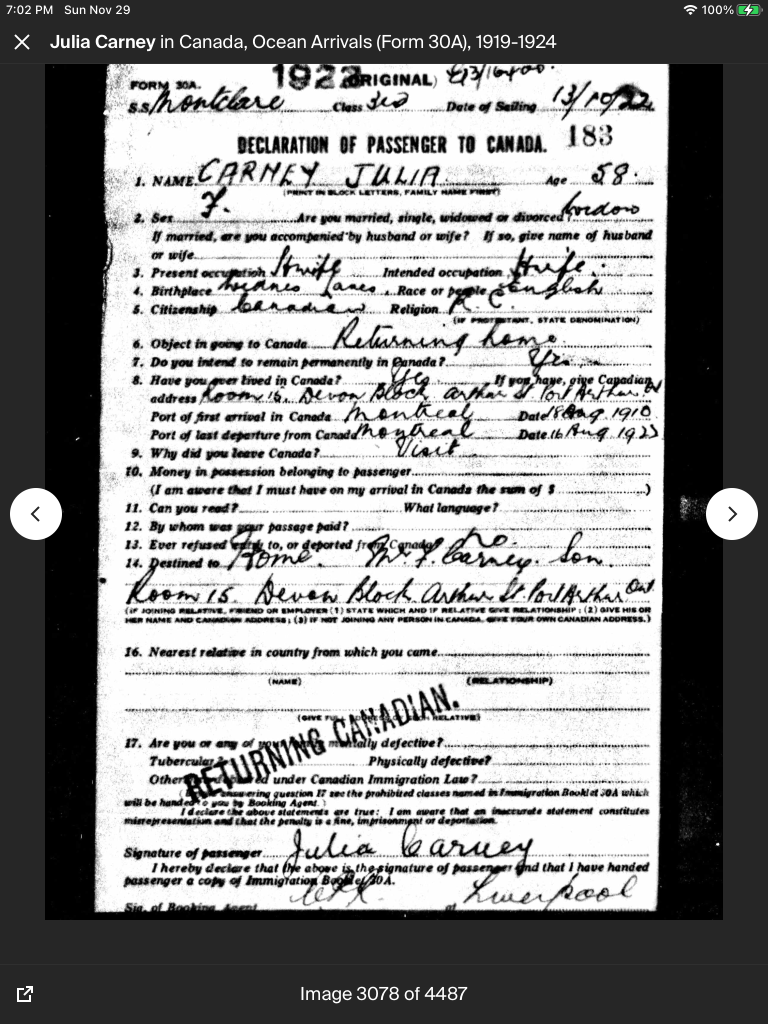 7:02 PM Sun Nov 29 100%
Julia Carney in Canada, Ocean Arrivals (Form 30A), 1919-1924
FORM 30A. 1922 ORIGINAL)
S.S. Montclare Class 3rd Date of Sailing 13/10/22
DECLARATION OF PASSENGER TO CANADA. 183
1. NAME CARNEY JULIA. Age 58.
(PRINT IN BLOCK LETTERS, FAMILY NAME FIRST)
2. Sex F. Are you married, single, widowed or divorced Widow
If married, are you accompanied by husband or wife? If so, give name of husband
or wife
3. Present occupation Hwife Intended occupation Hwife.
4. Birthplace Widnes Lancs. Race or people English
5. Citizenship Canadian Religion R C.
(IF PROTESTANT, STATE DENOMINATION)
6. Object in going to Canada Returning home.
7. Do you intend to remain permanently in Canada? Yes
8. Have you ever lived in Canada? Yes If you have, give Canadian
address Room 15. Devon Block Arthur St Port Arthur
Port of first arrival in Canada Montreal Date 18 Aug. 1910
Port of last departure from Canada Montreal Date 16 Aug
9. Why did you leave Canada? Visit
10. Money in possession belonging to passenger
(I am aware that I must have on my arrival in Canada the sum of $ )
11. Can you read? What language?
12. By whom was your passage paid?
13. Ever refused entry to, or deported from Canada no.
14. Destined to Home. Mr F. Carney. Son.
Room 15. Devon Block Arthur St Port Arthur Ont
(IF JOINING RELATIVE, FRIEND OR EMPLOYER (1) STATE WHICH AND IF RELATIVE GIVE RELATIONSHIP; (2) GIVE HIS OR
HER NAME AND CANADIAN ADDRESS; (3) IF NOT JOINING ANY PERSON IN CANADA, GIVE YOUR OWN CANADIAN ADDRESS.)
16. Nearest relative in country from which you came
(NAME) (RELATIONSHIP)
(GIVE FULL ADDRESS OF SUCH RELATIVE)
RETURNING CANADIAN.
17. Are you or any of your family mentally defective?
Tubercular? Physically defective?
Otherwise debarred under Canadian Immigration Law?
(Before answering question 17 see the prohibited classes named in Immigration Booklet 30A which
will be handed to you by Booking Agent.)
I declare the above statements are true: I am aware that an inaccurate statement constitutes
misrepresentation and that the penalty is a fine, imprisonment or deportation.
Signature of passenger Julia Carney
I hereby declare that the above is the signature of passenger and that I have handed
passenger a copy of Immigration Booklet 30A.
Sig. of Booking Agent at Liverpool
Image 3078 of 4487